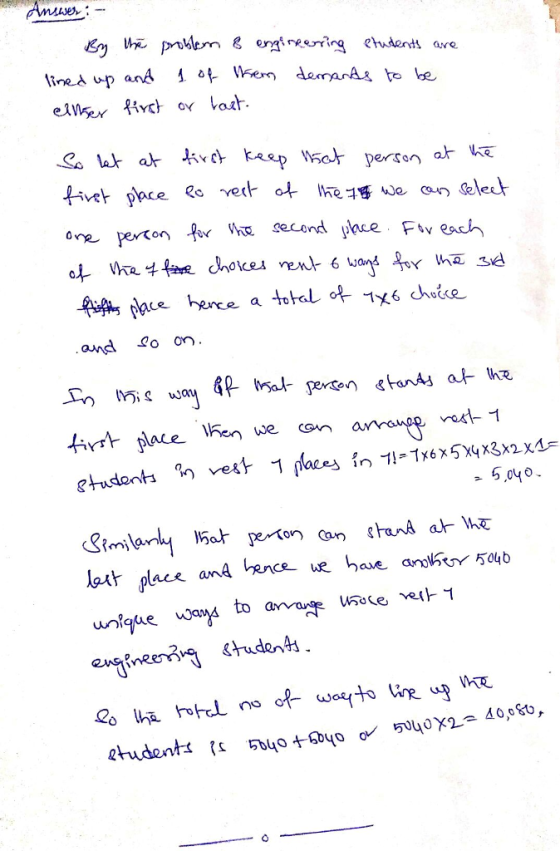 Answer:-
By the problem 8 engineering students are
lined up and 1 of them demands to be
either first or last.
So let at first keep that person at the
first place so rest of the 7 we can select
one person for the second place. For each
of the 7 choices next 6 ways for the 3rd
place hence a total of 7x6 choice
and so on.
In this way if that person stands at the
first place then we can arrange rest 7
students in rest 7 places in 7!=7x6x5x4x3x2x1=
= 5,040.
Similarly that person can stand at the
last place and hence we have another 5040
unique ways to arrange those rest 7
engineering students.
So the total no of way to line up the
students is 5040+5040 or 5040x2=10,080.